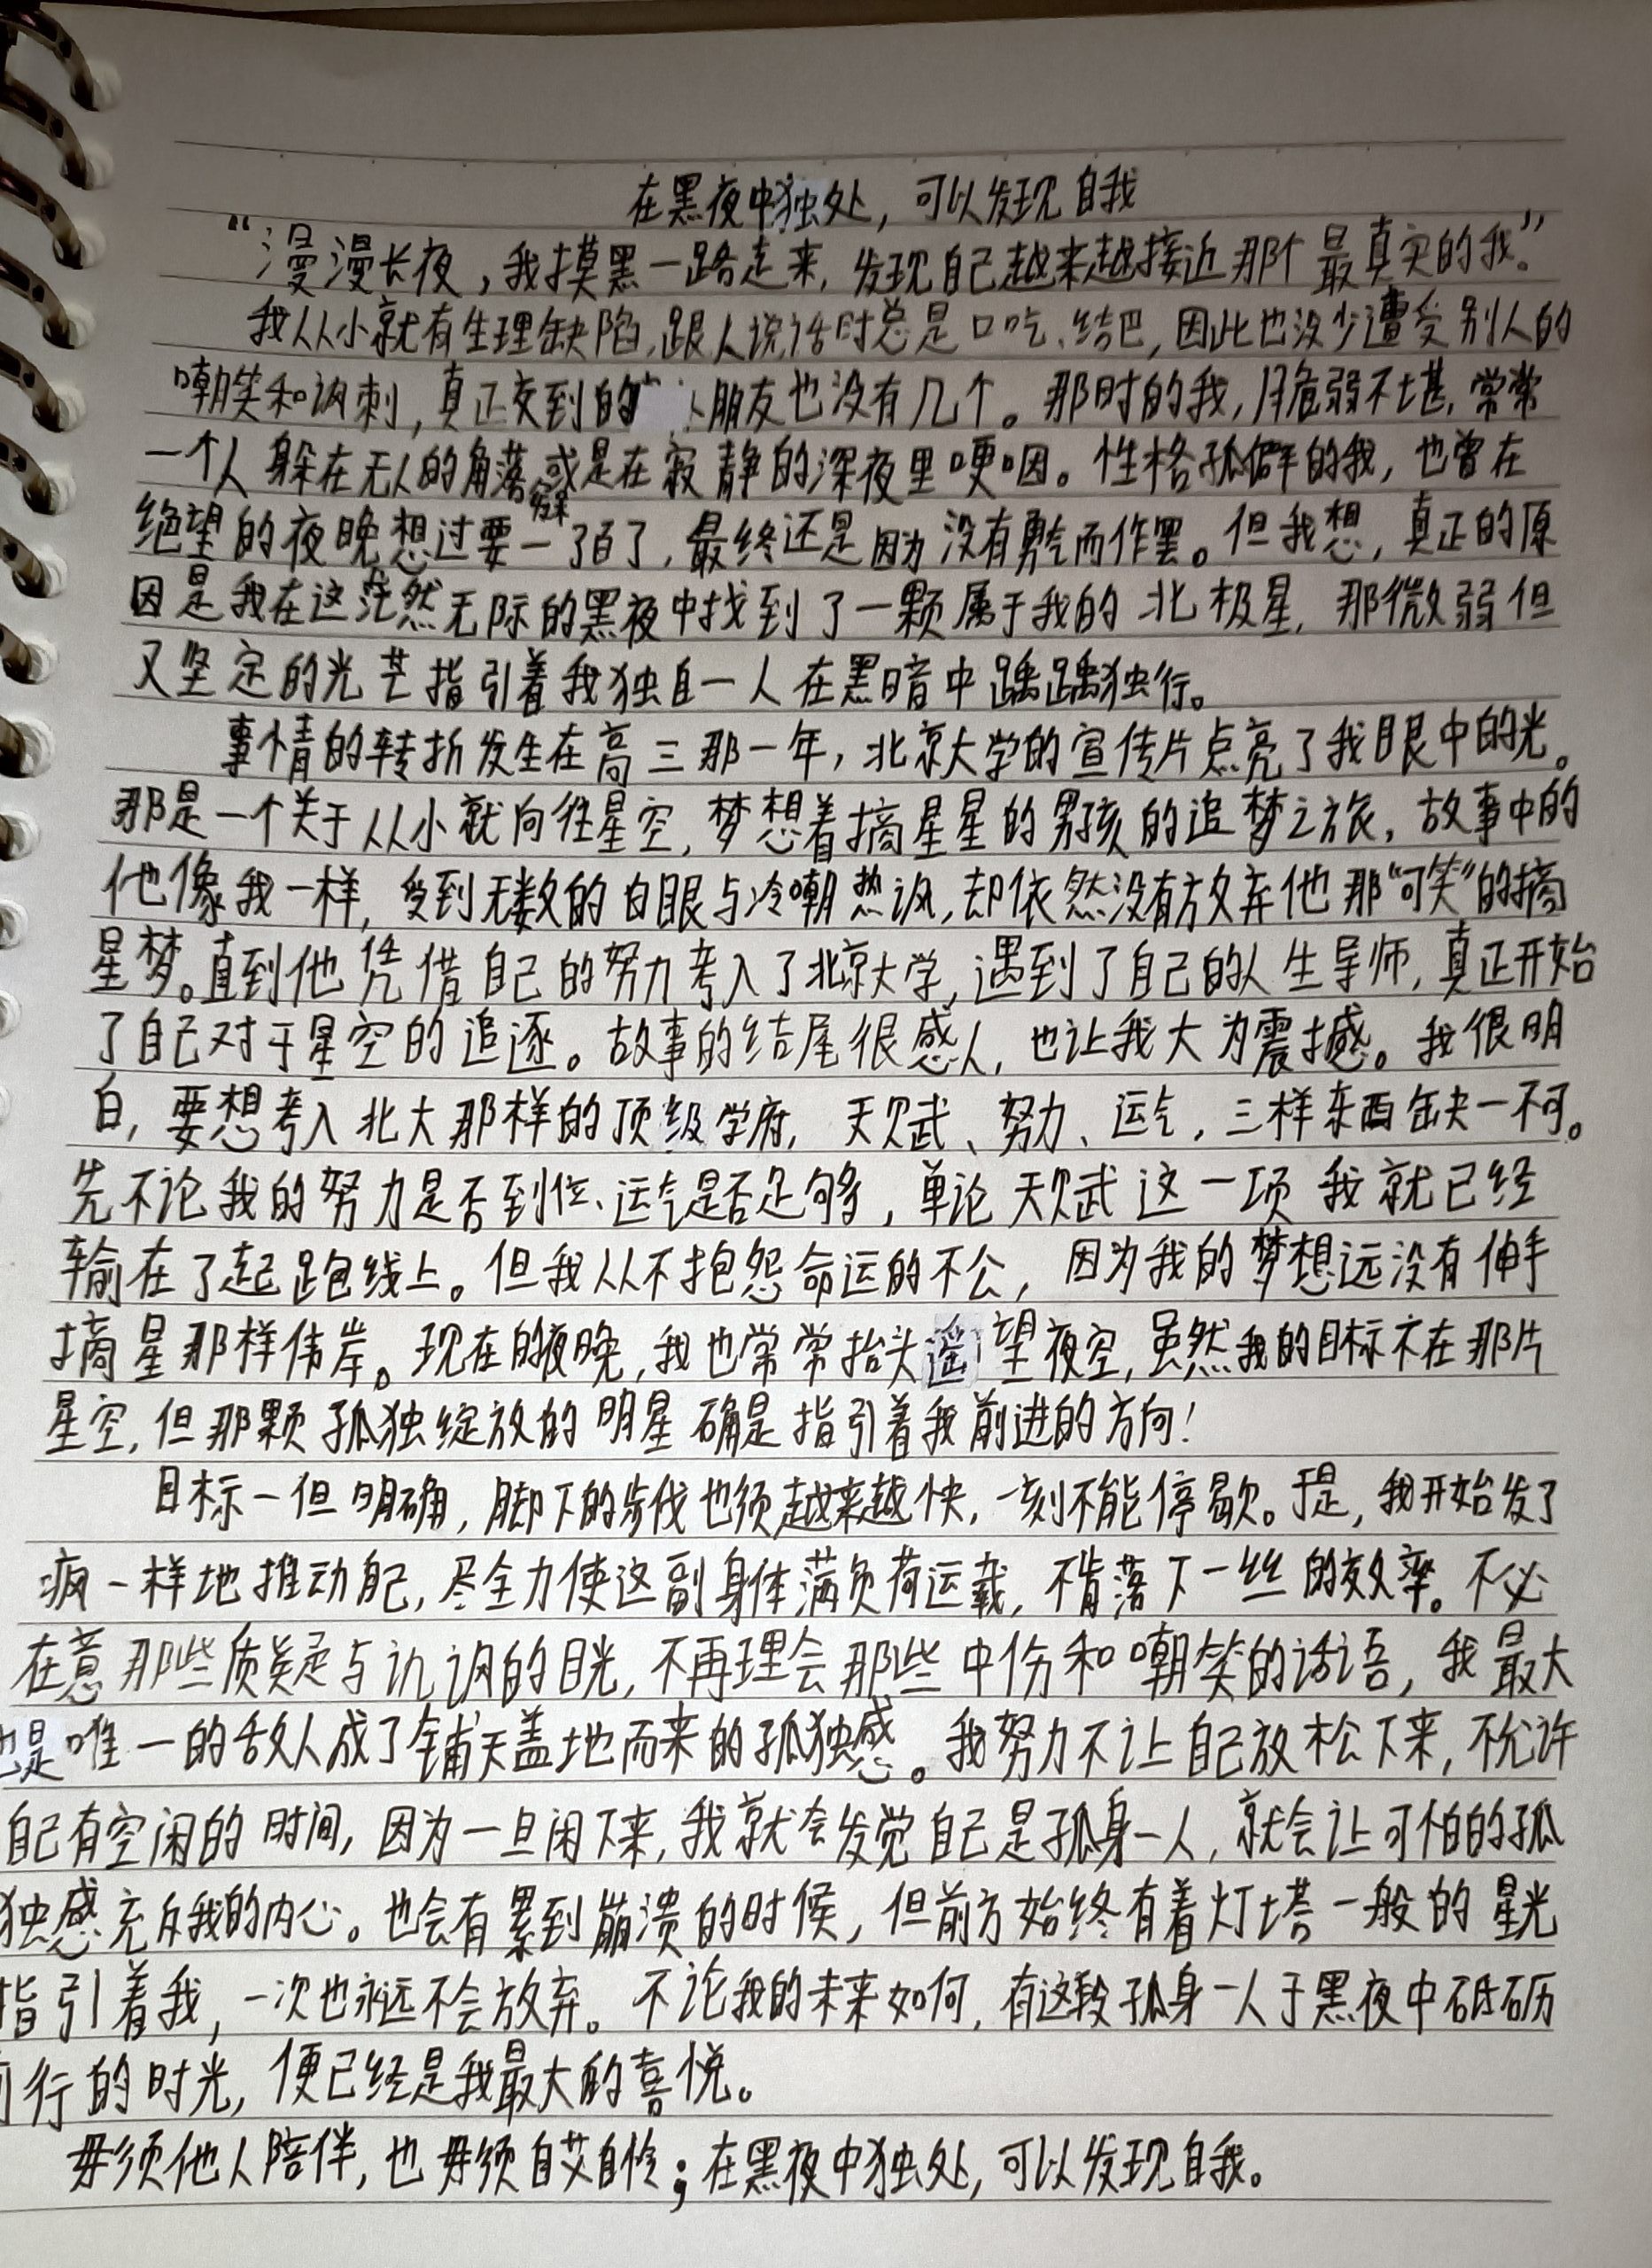 在黑夜中独处，可以发现自我
“漫漫长夜，我摸黑一路走来，发现自己越来越接近那个最真实的我。”
我从小就有生理缺陷，跟人说话时总是口吃、结巴，因此也没少遭受别人的
嘲笑和讽刺，真正交到的朋友也没有几个。那时的我，脆弱不堪，常常
一个人躲在无人的角落或是在寂静的深夜里哽咽。性格孤僻的我，也曾在
绝望的夜晚想过要一了百了，最终还是因为没有勇气而作罢。但我想，真正的原
因是我在这茫然无际的黑夜中找到了一颗属于我的北极星，那微弱但
又坚定的光芒指引着我独自一人在黑暗中踽踽独行。
事情的转折发生在高三那一年，北京大学的宣传片点亮了我眼中的光。
那是一个关于从小就向往星空，梦想着摘星星的男孩的追梦之旅，故事中的
他像我一样，受到无数的白眼与冷嘲热讽，却依然没有放弃他那“可笑”的摘
星梦。直到他凭借自己的努力考入了北京大学，遇到了自己的人生导师，真正开始
了自己对于星空的追逐。故事的结尾很感人，也让我大为震撼。我很明
白，要想考入北大那样的顶级学府，天赋、努力、运气，三样东西缺一不可。
先不论我的努力是否到位、运气是否足够，单论天赋这一项我就已经
输在了起跑线上。但我从不抱怨命运的不公，因为我的梦想远没有伸手
摘星那样伟岸。现在的夜晚，我也常常抬头遥望夜空，虽然我的目标不在那片
星空，但那颗孤独绽放的明星确是指引着我前进的方向！
目标一但明确，脚下的步伐也须越来越快，一刻不能停歇。于是，我开始发了
疯一样地推动自己，尽全力使这副身体满负荷运载，不肯落下一丝的效率。不必
在意那些质疑与讥讽的目光，不再理会那些中伤和嘲笑的话语，我最大
也是唯一的敌人成了铺天盖地而来的孤独感。我努力不让自己放松下来，不允许
自己有空闲的时间，因为一旦闲下来，我就会发觉自己是孤身一人，就会让可怕的孤
独感充斥我的内心。也会有累到崩溃的时候，但前方始终有着灯塔一般的星光
指引着我，一次也永远不会放弃。不论我的未来如何，有这段孤身一人于黑夜中砥砺
前行的时光，便已经是我最大的喜悦。
毋须他人陪伴，也毋须自艾自怜；在黑夜中独处，可以发现自我。